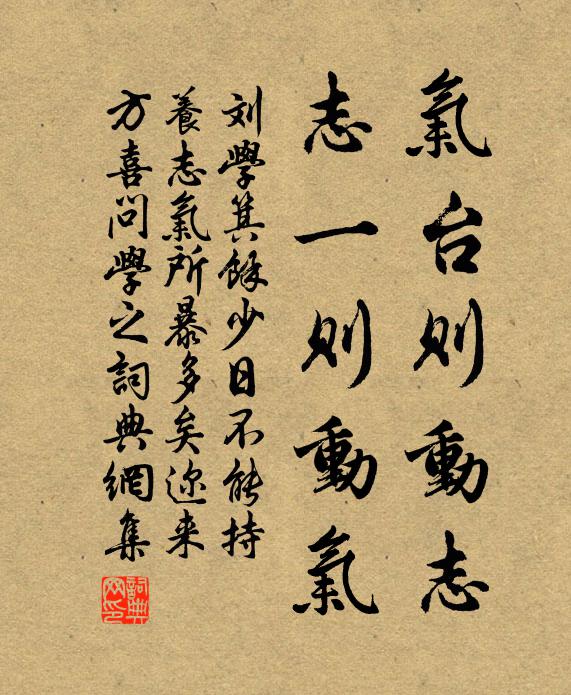 氣台则動志
志一则動氣
刘學箕餘少日不能持
養志氣所暴多矣迩来
方喜問學之詞典網集
詞典网印